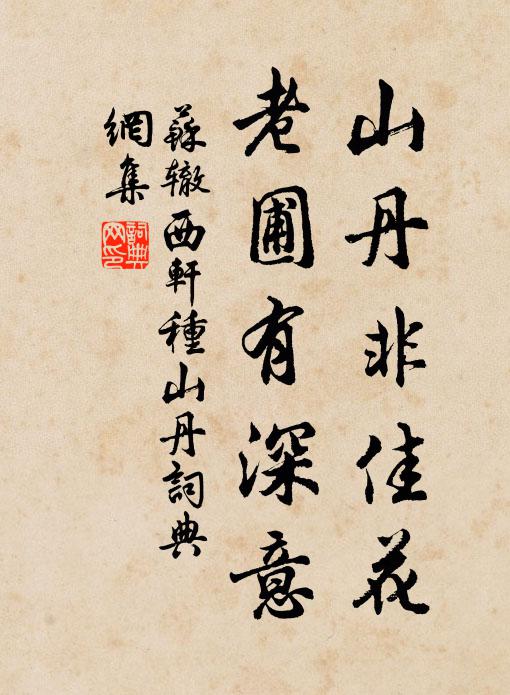 山丹非佳花
老圃有深意
蘇辙西軒種山丹詞典
網集
詞典
网印